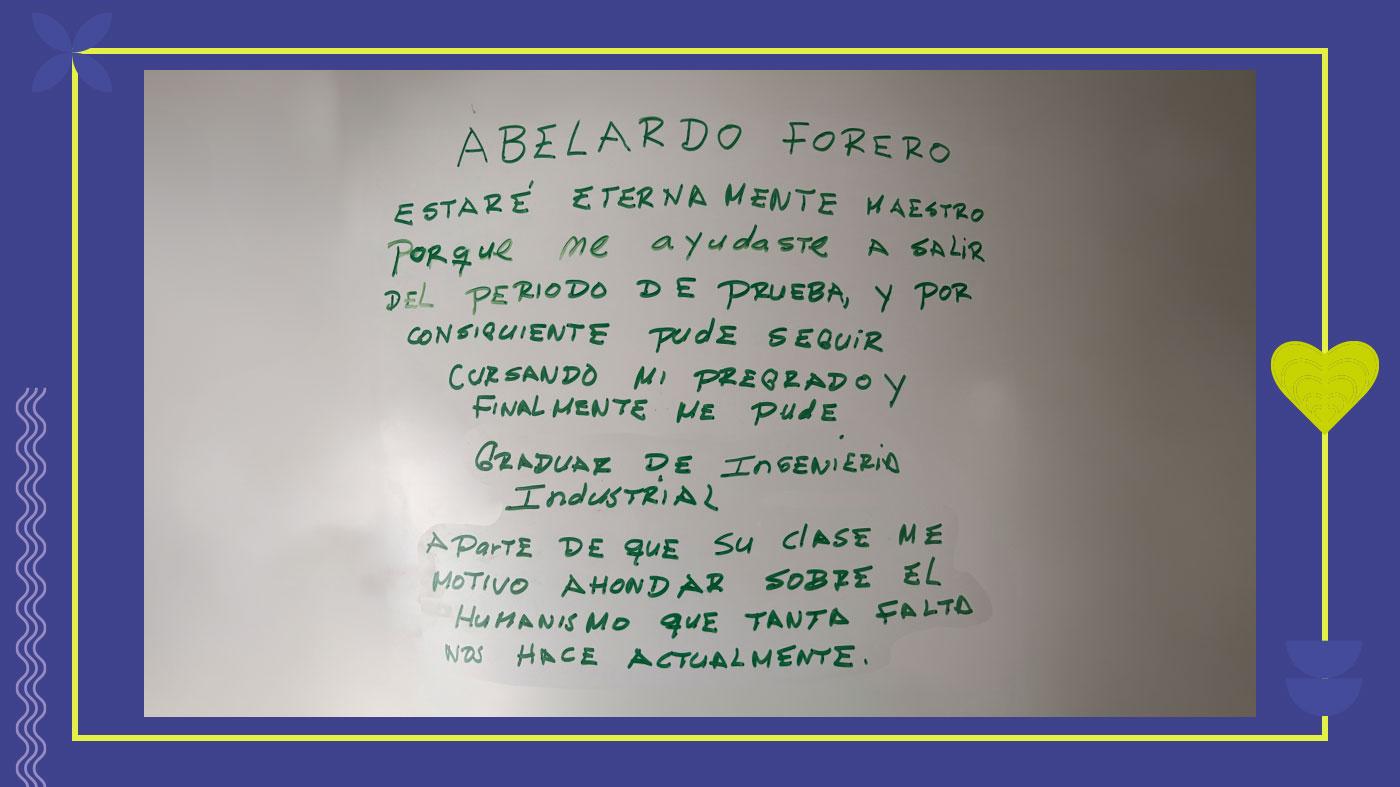 ABELARDO FORERO
ESTARÉ ETERNAMENTE MAESTRO
PORque me ayudaste A SALIR
DEL PERIODO DE PRUEBA, Y POR
CONSIGUIENTE PUdE SEGUIR
CURSANDO MI PREGRADO Y
FINALMENTE ME PUdE
GRADUAR DE InGENIERIA
IndUSTRIAL
APartE DE QUE SU ClASE ME
MOTIVO AHONDAR SOBRE EL
HUMANISMO QUE TANTA FALTA
NOS HACE ACTUALMENTE.